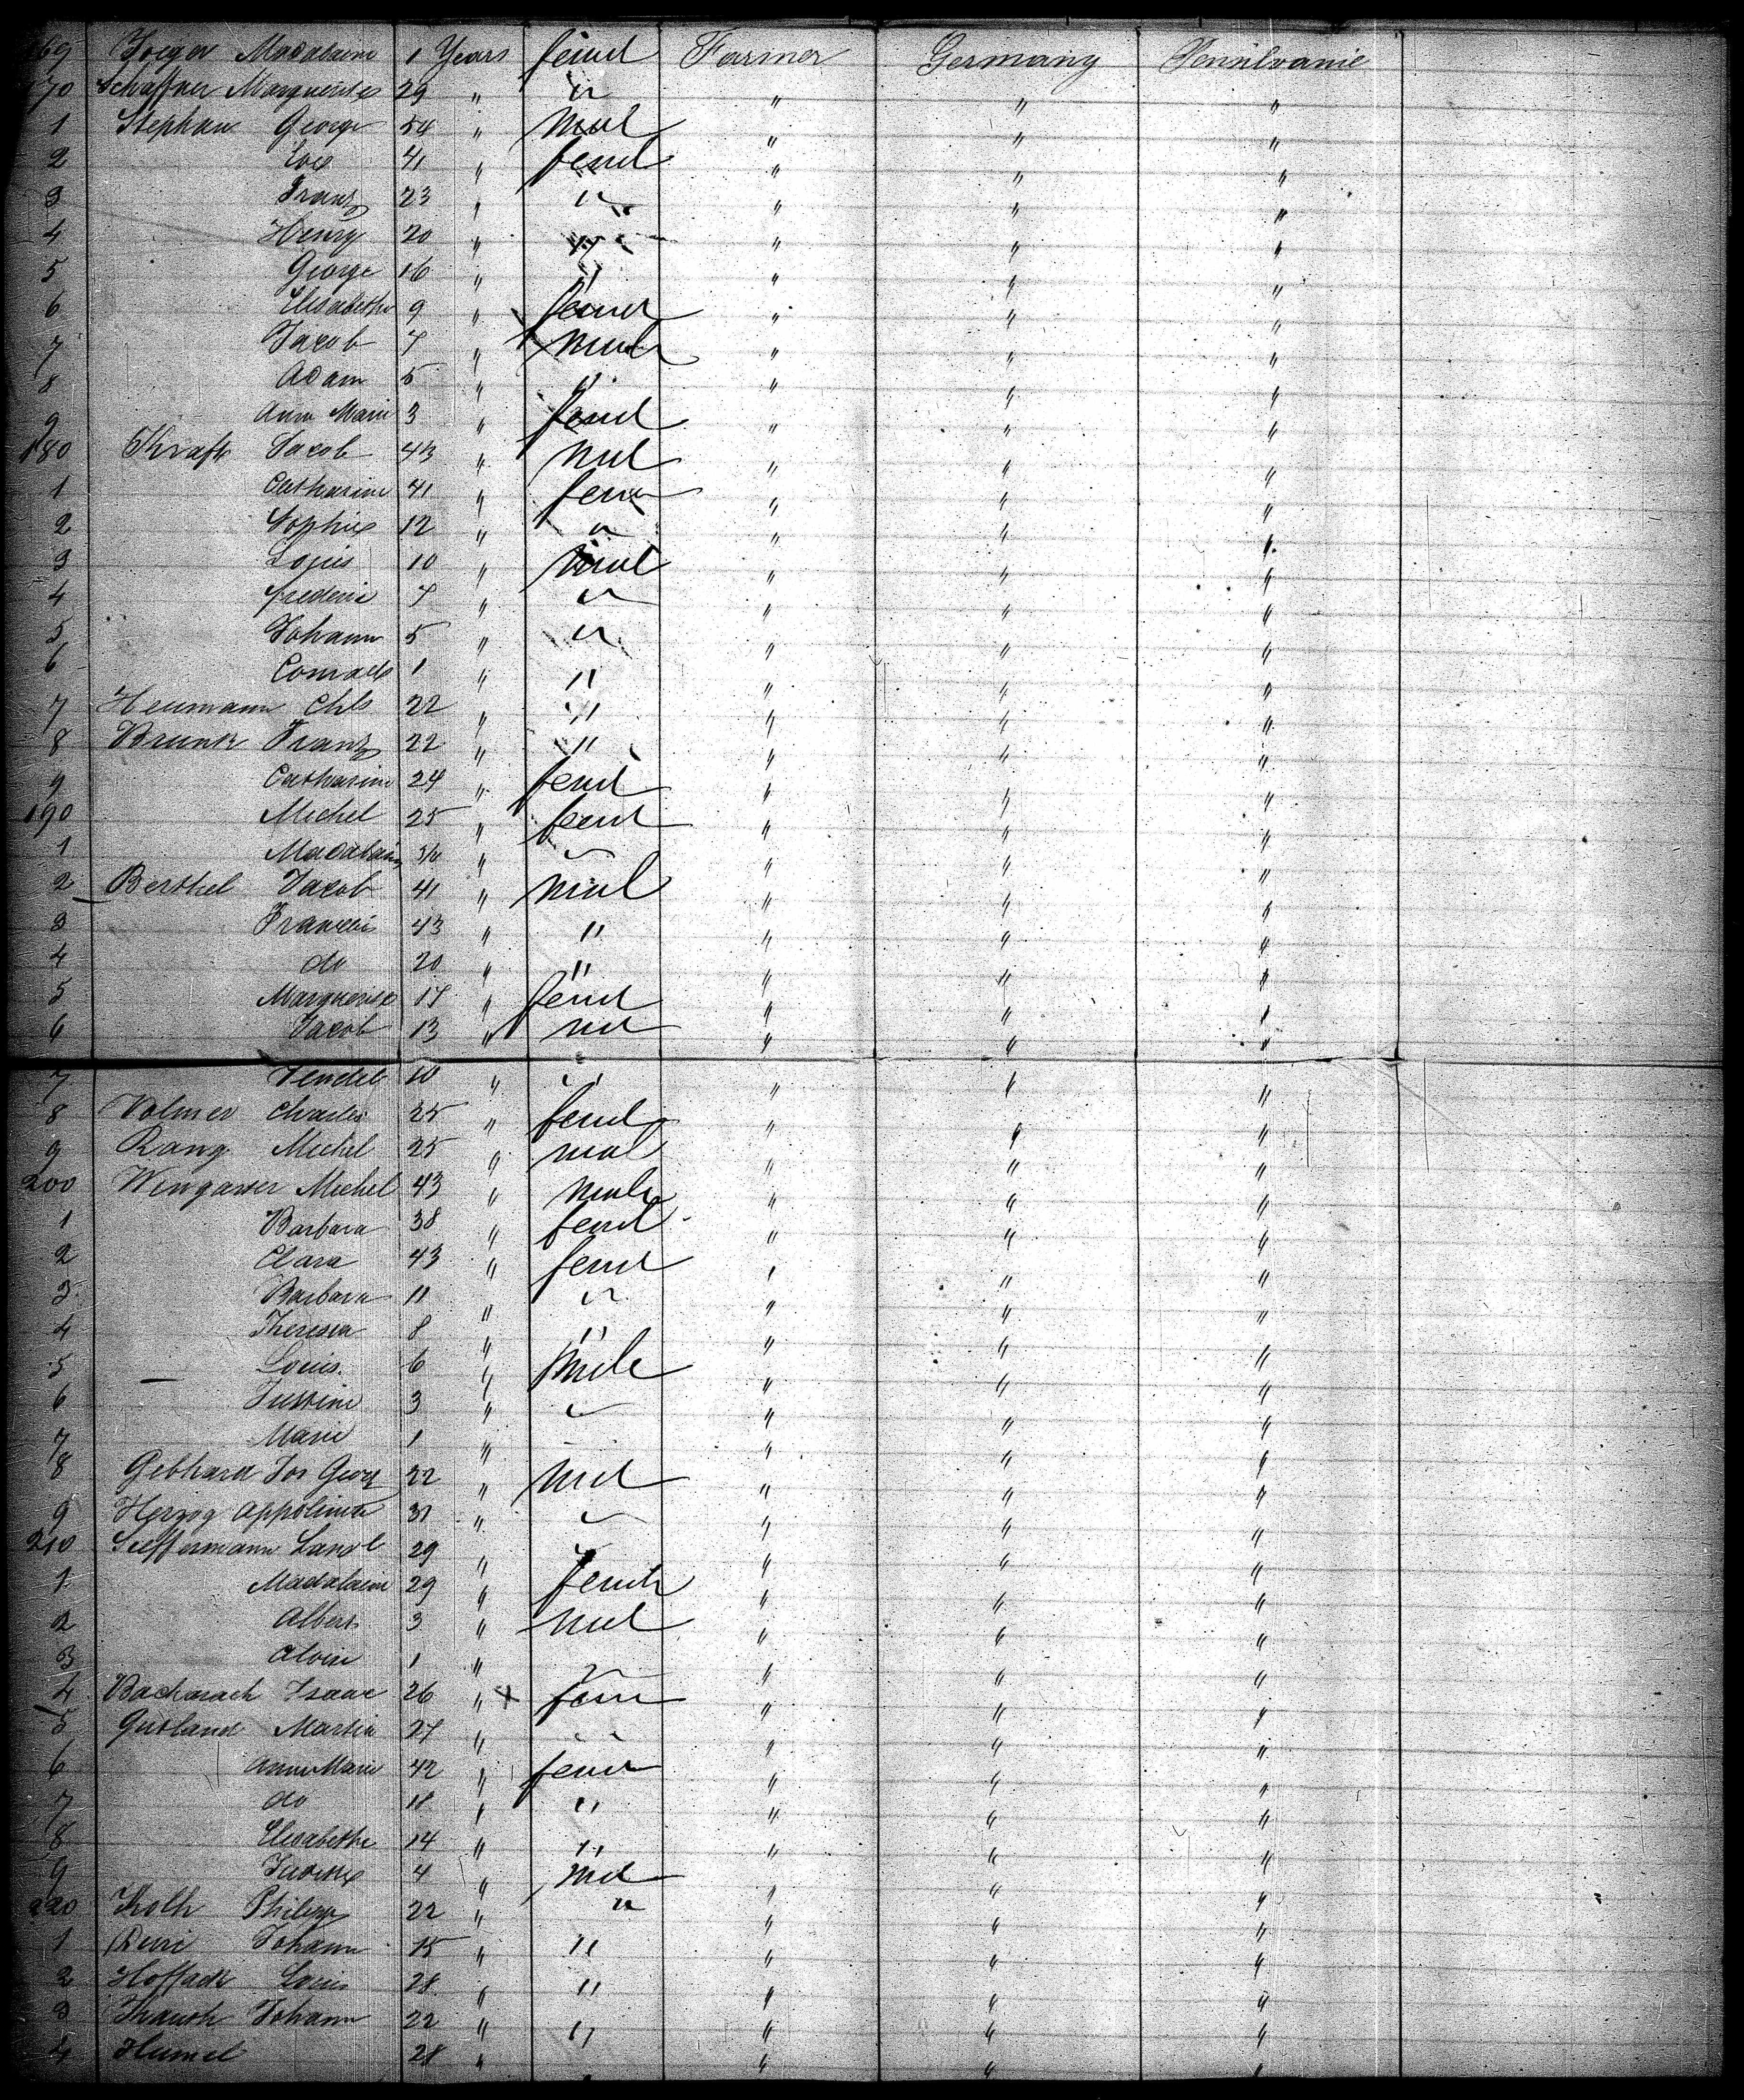 169 Joeger Madalaine 1 Years femel Farmer Germany Pensilvanie
170 Schaffner Marguerite 29 " " " " "
1 Stephan George 54 " mal " " "
2 Eva 41 " femel " " "
3 Franz 23 " " " " "
4 Henry 20 " " " " "
5 George 16 " " " " "
6 Elisabetha 9 " femel " " "
7 Jacob 7 " male " " "
8 Adam 5 " " " " "
9 Ann Marie 3 " femel " " "
180 Kraft Jacob 43 " mal " " "
1 Catharine 41 " fem " " "
2 Sophie 12 " " " " "
3 Louis 10 " mal " " "
4 frederic 7 " " " " "
5 Johann 5 " " " " "
6 Conrad 1 " " " " "
7 Heumann Chls 22 " " " " "
8 Brunk Franz 22 " " " " "
9 Catharine 24 " femel " " "
190 Michel 25 " femel " " "
1 Madalaine 3/4 " " " " "
2 Berthel Jacob 41 " mal " " "
3 43 " " " " "
4 do 20 " " " " "
5 Marguerite 17 " femel " " "
6 Jacob 13 " mal " " "
7 10 " " " " "
8 Volmer Charles 25 " femel " " "
9 Rang Michel 25 " mal " " "
200 Michel 43 " male " " "
1 Barbara 38 " femel " " "
2 Clara 43 " femel " " "
3 Barbara 11 " " " " "
4 Theresia 8 " " " " "
5 Louis 6 " male " " "
6 Justine 3 " " " " "
7 Marie 1 " " " "
8 Gebhard Jos Georg 22 " mal " " "
9 Herzog 31 " " " " "
210 29 " " " "
1 Madalaine 29 " femele " " "
2 Albert 3 " mal " " "
3 1 " " " " "
4 Bacharach Isaac 26 " x fem " " "
5 Martin 27 " " " " "
6 Anna Marie 42 " femel " " "
7 do 18 " " " " "
8 Elisabetha 14 " " " " "
9 4 " mal " " "
220 22 " " " " "
1 Johann 15 " " " " "
2 Louis 28 " " " " "
3 Johann 22 " " " " "
4 Humel 28 " " " "